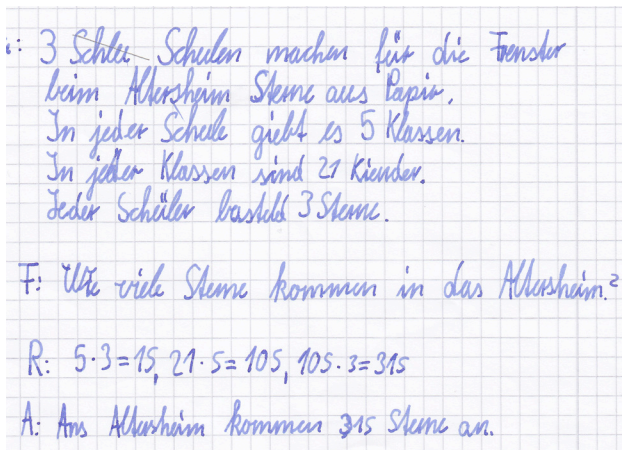 : 3 Schlu Schulen machen für die Frenster
beim Altersheim Sterne aus Papir.
In jeder Schule giebt es 5 Klassen.
In jeder Klassen sind 21 Kiender.
Jeder Schüler basteld 3 Sterne.
F: Wie viele Sterne kommen in das Altersheim.?
R: 5·3=15, 21·5=105, 105·3=315
A: Ans Altersheim kommen 315 Sterne an.